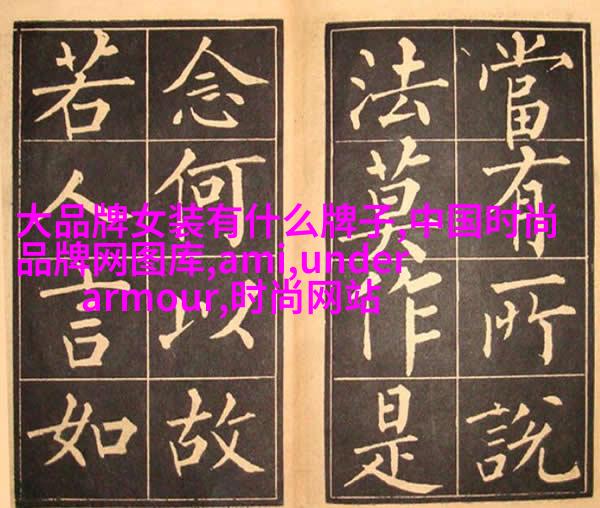 當有所說
法莫作是
念何以故
若人言如
大品牌女装有什么牌子,中国时尚
品牌网图库,ami,under
armour,时尚网站